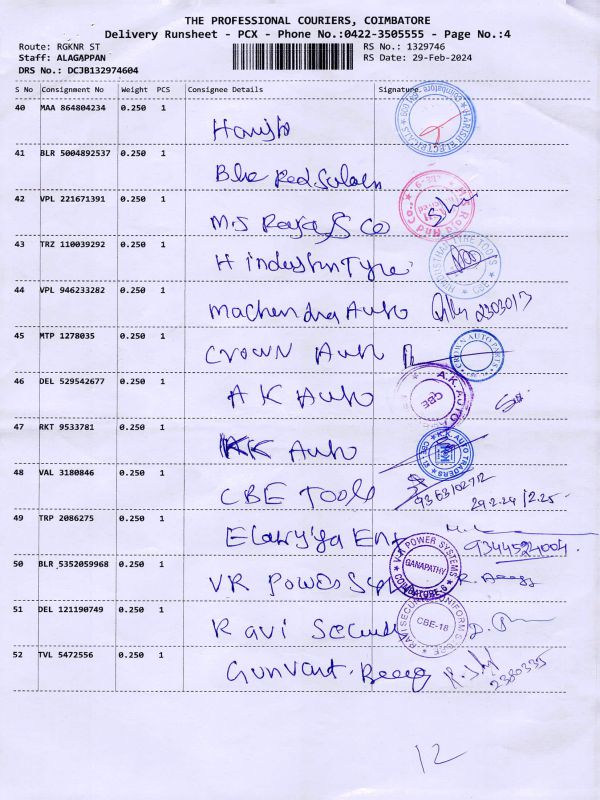 THE PROFESSIONAL COURIERS, COIMBATORE
Delivery Runsheet - PCX - Phone No.:0422-3505555 - Page No.:4
Route: RGKNR ST RS No.: 1329746
Staff: ALAGAPPAN RS Date: 29-Feb-2024
DRS No.: DCJB132974604
S No Consignment No Weight PCS Consignee Details Signature
40 MAA 864804234 0.250 1
HARISH ELECTRICALS
41 BLR 5004892537 0.250 1
Blue Red
42 VPL 221671391 0.250 1
M/S Raya & Co
43 TRZ 110039292 0.250 1
44 VPL 946233282 0.250 1
Machendra Auto 2303013
45 MTP 1278035 0.250 1
Crown Auto CROWN AUTO PARTS
46 DEL 529542677 0.250 1
A K Auto A.K. AUTO CBE
47 RKT 9533781 0.250 1
KK Auto AUTO TRADERS
48 VAL 3180846 0.250 1
CBE Tools 29.2.24 / 2.25
49 TRP 2086275 0.250 1
9344521004
50 BLR 5352059968 0.250 1
VR Power V.R POWER SYSTEMS GANAPATHY COIMBATORE-6
51 DEL 121190749 0.250 1
Ravi RAVI SECURITY UNIFORMS CBE-18
52 TVL 5472556 0.250 1
Gunvant 2380335
12